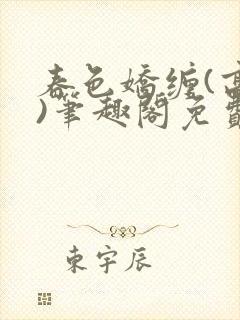 春色嬌纏(高
)筆趣閣免費
東宇辰